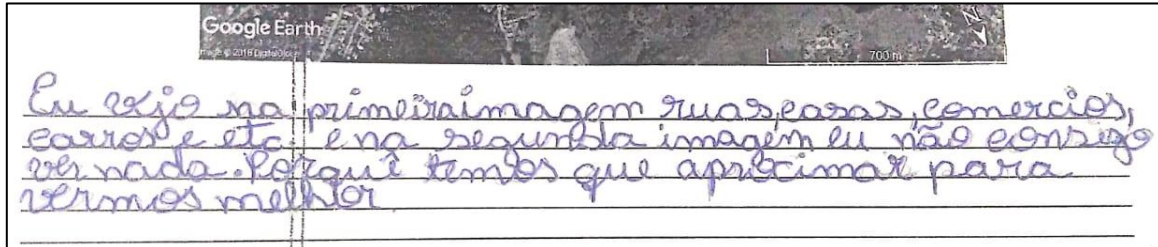 Google Earth
700 m
N
Eu vejo na primeira imagem ruas, casas, comercios,
carros e etc e na segunda imagem eu não consigo
ver nada. Porquê temos que aprocimar para
vermos melhor